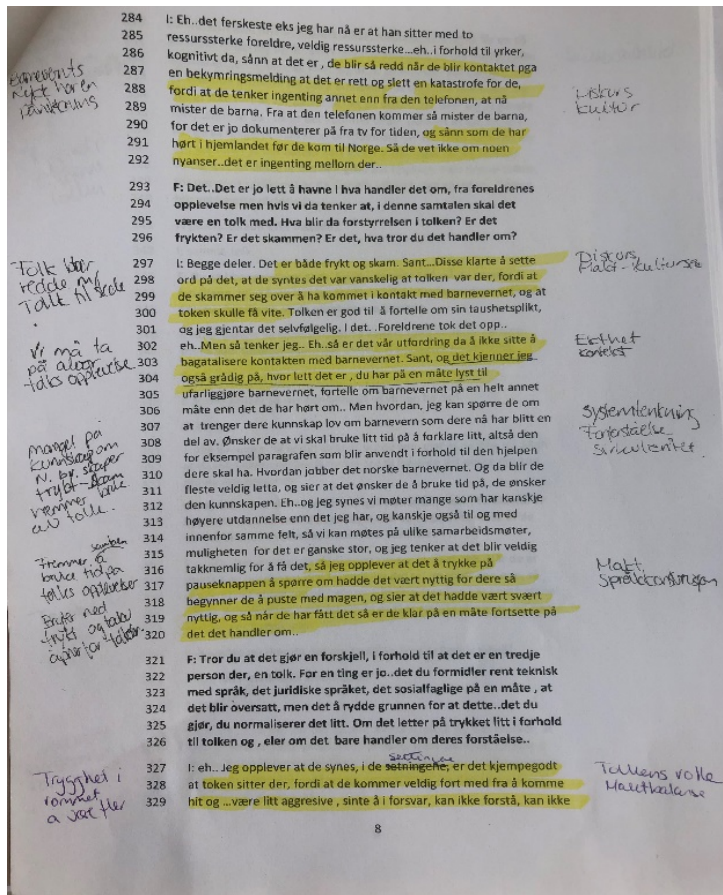 284 I: Eh..det ferskeste eks jeg har nå er at han sitter med to
285 ressurssterke foreldre, veldig ressurssterke...eh..i forhold til yrker,
286 kognitivt da, sånn at det er , de blir så redd når de blir kontaktet pga
287 en bekymringsmelding at det er rett og slett en katastrofe for de,
288 fordi at de tenker ingenting annet enn fra den telefonen, at nå
289 mister de barna. Fra at den telefonen kommer så mister de barna,
290 for det er jo dokumenterer på fra tv for tiden, og sånn som de har
291 hørt i hjemlandet før de kom til Norge. Så de vet ikke om noen
292 nyanser..det er ingenting mellom der..
Diskurs
kultur
293 F: Det..Det er jo lett å havne I hva handler det om, fra foreldrenes
294 opplevelse men hvis vi da tenker at, i denne samtalen skal det
295 være en tolk med. Hva blir da forstyrrelsen i tolken? Er det
296 frykten? Er det skammen? Er det, hva tror du det handler om?
297 I: Begge deler. Det er både frykt og skam. Sant...Disse klarte å sette
298 ord på det, at de syntes det var vanskelig at tolken var der, fordi at
299 de skammer seg over å ha kommet i kontakt med barnevernet, og at
300 token skulle få vite. Tolken er god til å fortelle om sin taushetsplikt,
301 og jeg gjentar det selvfølgelig. I det. .Foreldrene tok det opp..
302 eh..Men så tenker jeg.. Eh..så er det vår utfordring da å ikke sitte å
303 bagatalisere kontakten med barnevernet. Sant, og det kjenner jeg
304 også grådig på, hvor lett det er , du har på en måte lyst til
305 ufarliggjøre barnevernet, fortelle om barnevernet på en helt annet
306 måte enn det de har hørt om.. Men hvordan, jeg kan spørre de om
307 at trenger dere kunnskap lov om barnevern som dere nå har blitt en
308 del av. Ønsker de at vi skal bruke litt tid på å forklare litt, altså den
309 for eksempel paragrafen som blir anvendt i forhold til den hjelpen
310 dere skal ha. Hvordan jobber det norske barnevernet. Og da blir de
311 fleste veldig letta, og sier at det ønsker de å bruke tid på, de ønsker
312 den kunnskapen. Eh..og jeg synes vi møter mange som har kanskje
313 høyere utdannelse enn det jeg har, og kanskje også til og med
314 innenfor samme felt, så vi kan møtes på ulike samarbeidsmøter,
315 muligheten for det er ganske stor, og jeg tenker at det blir veldig
316 takknemlig for å få det, så jeg opplever at det å trykke på
317 pauseknappen å spørre om hadde det vært nyttig for dere så
318 begynner de å puste med magen, og sier at det hadde vært svært
319 nyttig, og så når de har fått det så er de klar på en måte fortsette på
320 det det handler om..
Tolk blir
redde når
Tolk til stede
Vi må ta
på alvor
folks opplevelse
mangel på
kunnskap om
N. bv. skaper
frykt
Fremmer å
bruke tid på
folks opplevelser
Diskurs
Ekthet
kontekst
Systemtenkning
Forforståelse
Sirkularitet
Makt
321 F: Tror du at det gjør en forskjell, i forhold til at det er en tredje
322 person der, en tolk. For en ting er jo..det du formidler rent teknisk
323 med språk, det juridiske språket, det sosialfaglige på en måte , at
324 det blir oversatt, men det å rydde grunnen for at dette..det du
325 gjør, du normaliserer det litt. Om det letter på trykket litt i forhold
326 til tolken og , eler om det bare handler om deres forståelse..
327 I: eh.. Jeg opplever at de synes, i de setningene, er det kjempegodt
328 at token sitter der, fordi at de kommer veldig fort med fra å komme
329 hit og ...være litt aggresive , sinte å i forsvar, kan ikke forstå, kan ikke
Trygghet i
rommet
Tolkens rolle
Maktbalanse
8